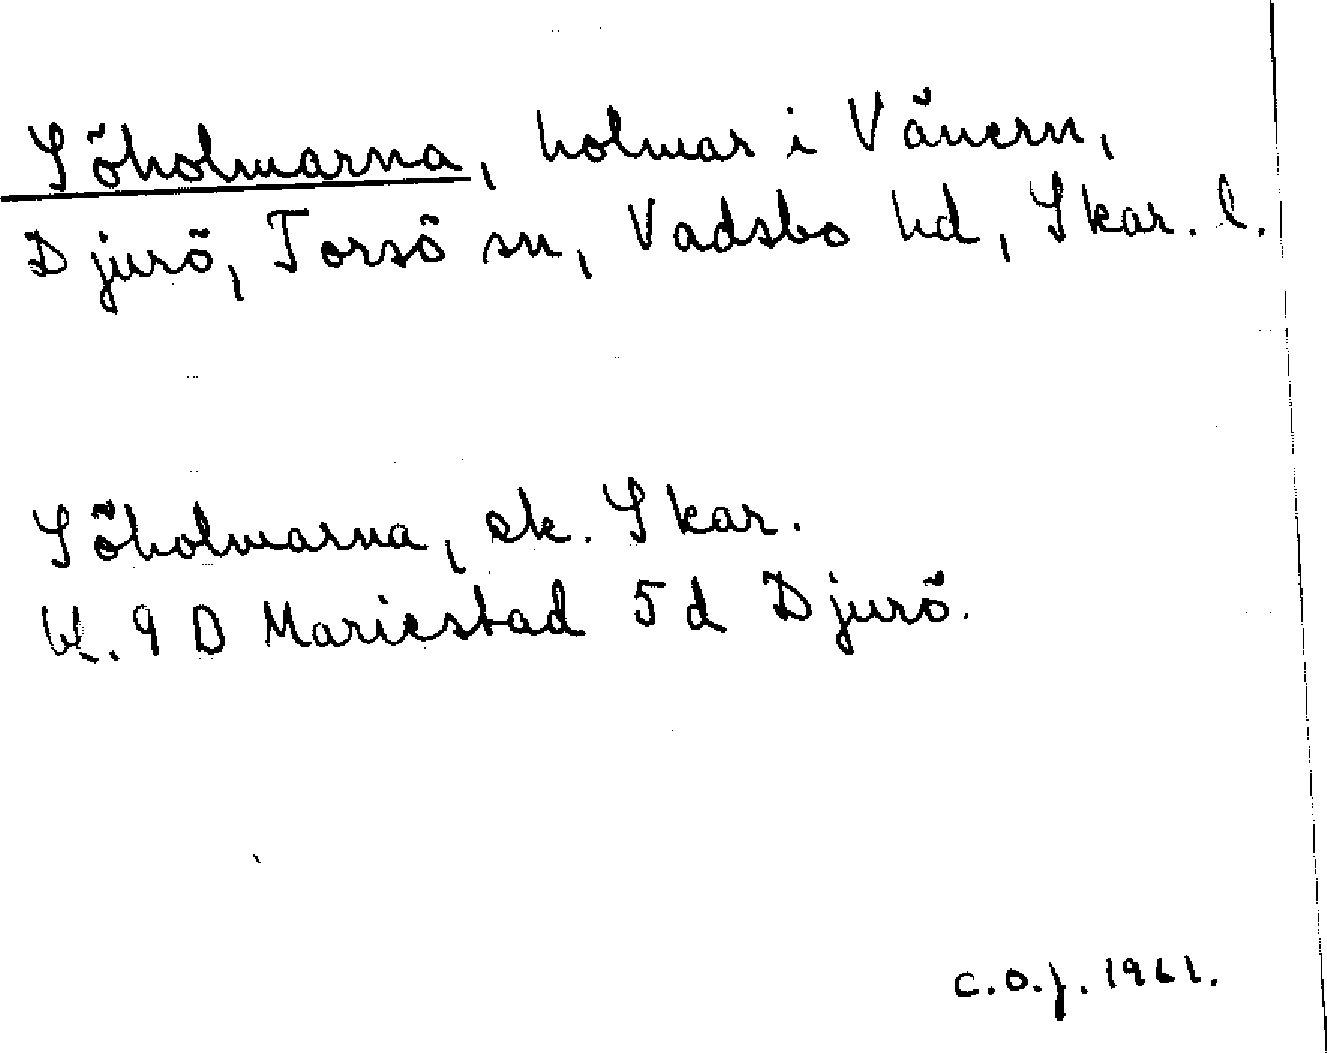 Söholmarna, holmar i Vänern,
Djurö, Torsö sn, Vadsbo hd, Skar. l.
Söholmarna, ek. Skar.
K. 9 D Mariestad 5 d Djurö.
C.O.J. 1961.